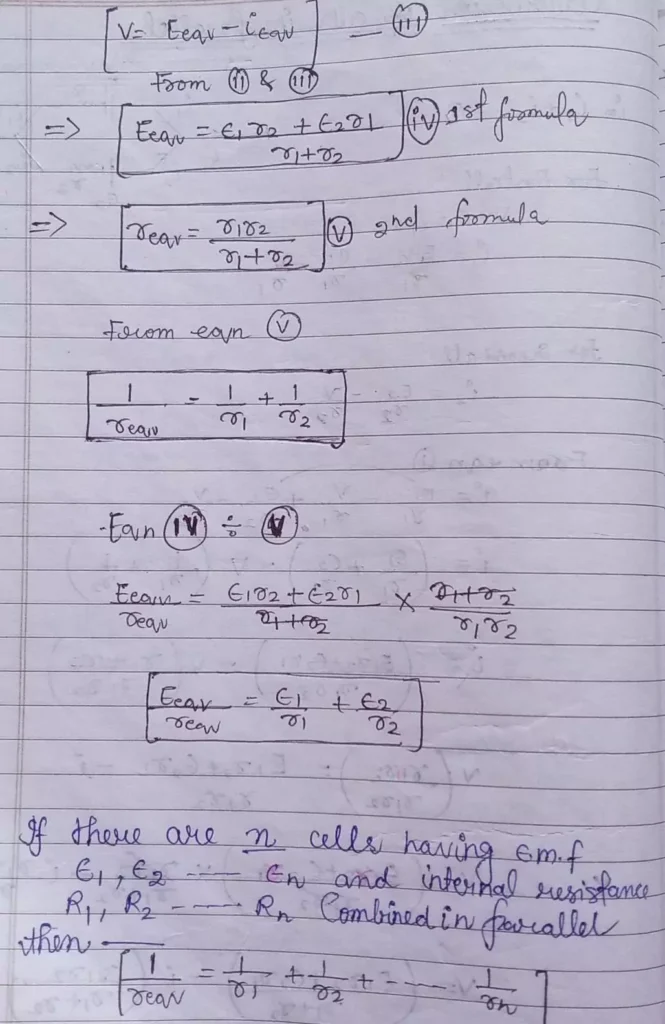 V = Eeqv - ieqv — (iii)
From (ii) & (iii)
=> Eeqv = ε1r2 + ε2r1 / r1+r2 (iv) 1st formula
=> reqv = r1r2 / r1+r2 (v) 2nd formula
From eqn (v)
1/reqv = 1/r1 + 1/r2
Eqn (iv) ÷ (v)
Eeqv/reqv = ε1r2 + ε2r1 / r1+r2 × r1+r2 / r1r2
Eeqv/reqv = ε1/r1 + ε2/r2
If there are n cells having Em.f
ε1, ε2 ---- εn and internal resistance
R1, R2 ---- Rn Combined in parallel
then —
1/reqv = 1/r1 + 1/r2 + ---- 1/rn